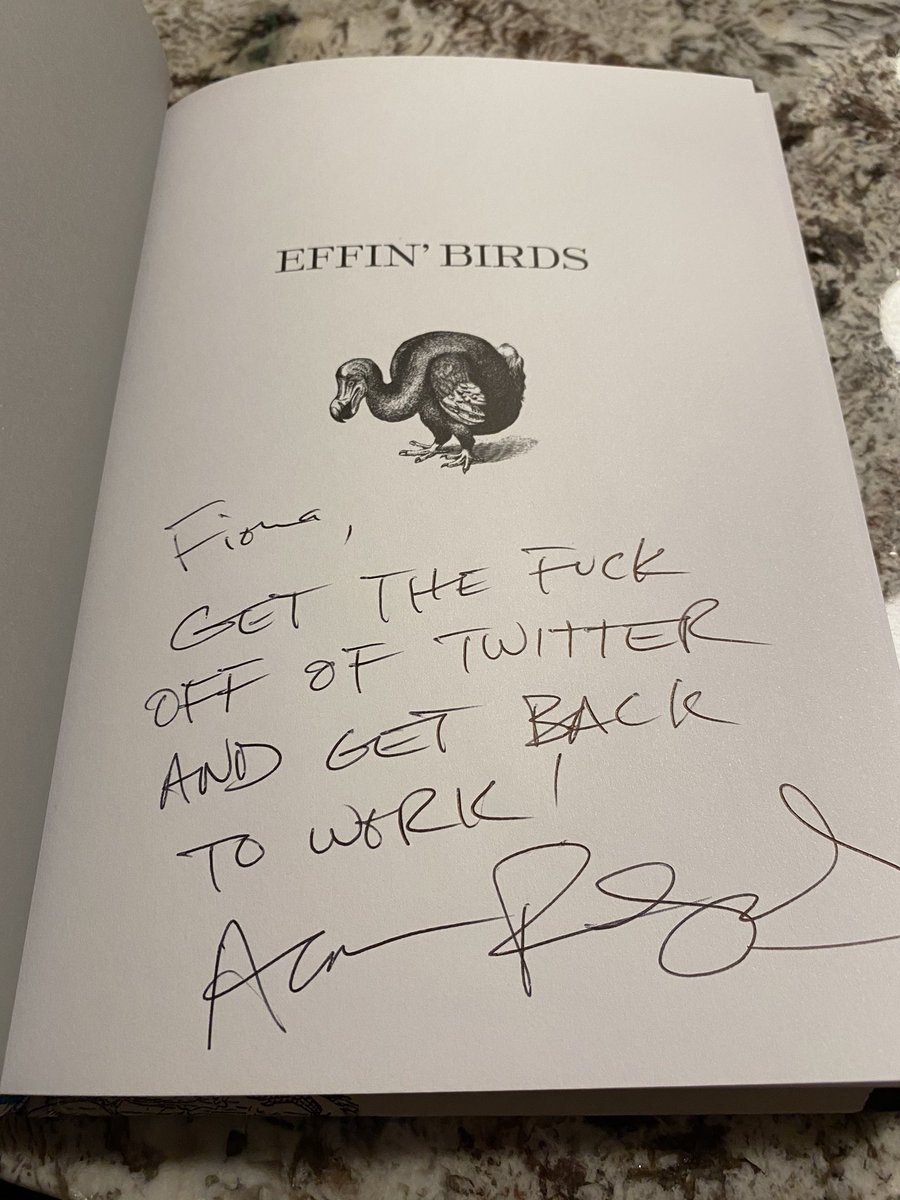 EFFIN' BIRDS
Fiona,
GET THE FUCK
OFF OF TWITTER
AND GET BACK
TO WORK!
Aaron